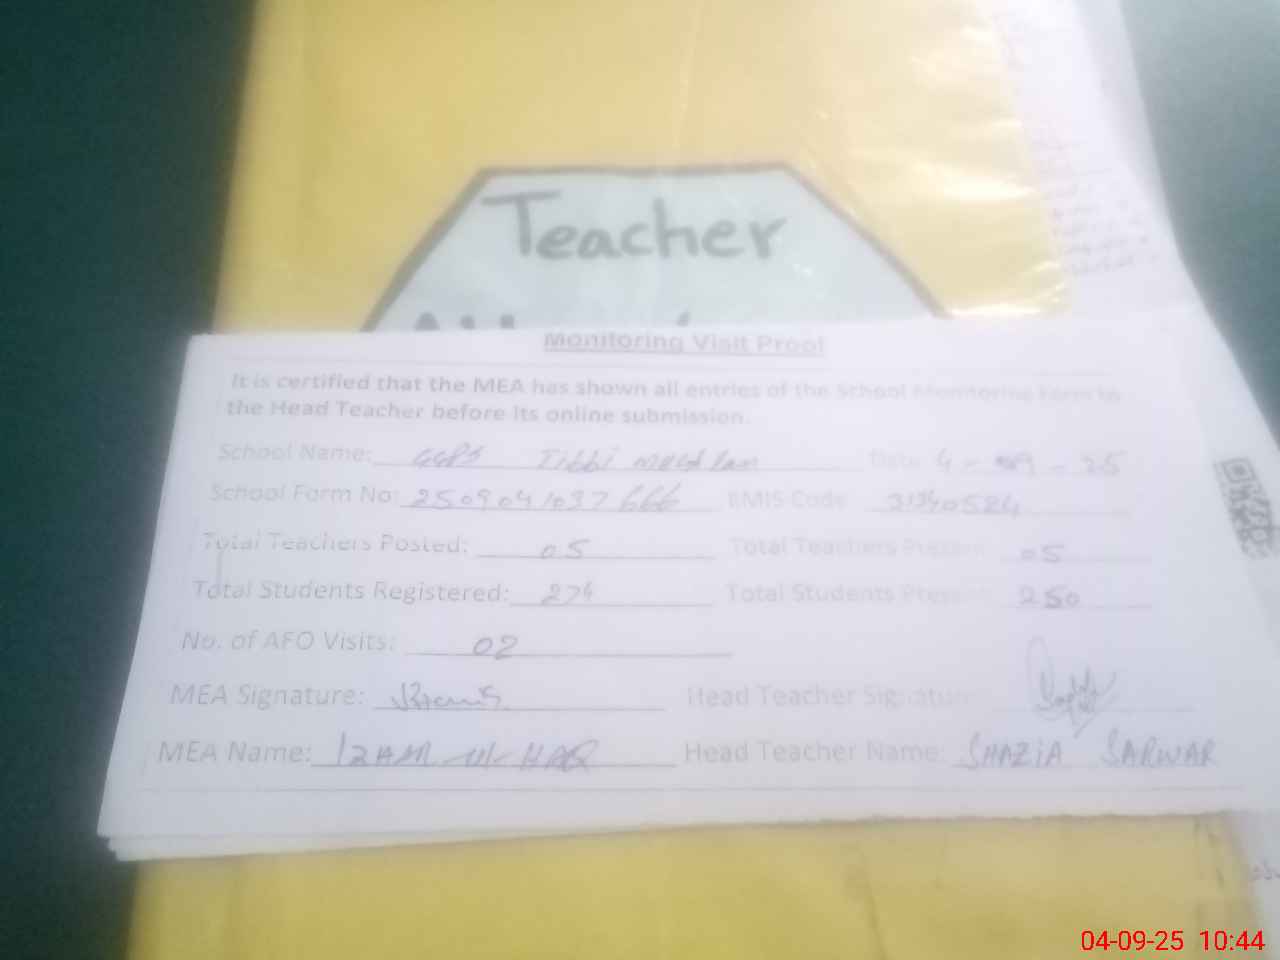 Teacher
Monitoring Visit Proof
It is certified that the MEA has shown all entries of the School Monitoring Form to
the Head Teacher before its online submission.
School Name: GGPS Tibbi Date 4-09-25
School Form No: 2509041037666 EMIS Code
Total Teachers Posted: 05 Total Teachers Present 05
Total Students Registered: 274 Total Students Present 250
No. of AFO Visits: 02
MEA Signature: Head Teacher Signature
MEA Name: IZAM-ul-HAQ Head Teacher Name: SHAZIA SARWAR
04-09-25 10:44